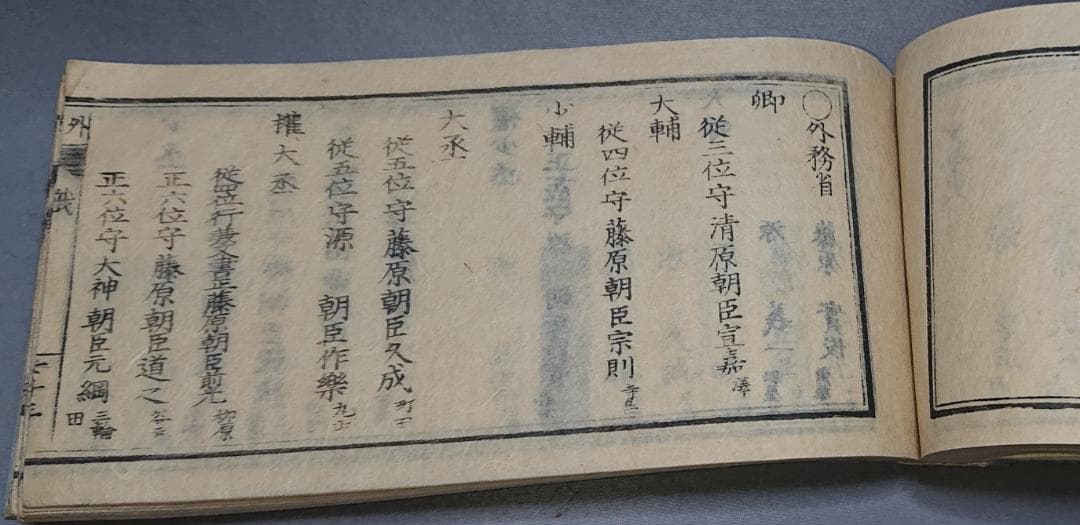 ○外務省
卿
従三位守清原朝臣宣嘉 澤
大輔
従四位守藤原朝臣宗則 寺島
少輔
大丞
従五位守藤原朝臣久成 町田
従五位守源朝臣作樂 丸山
権大丞
従四位行兼文書正藤原朝臣前光 柳原
正六位守藤原朝臣道之
正六位守大神朝臣元綱 三輪田
外